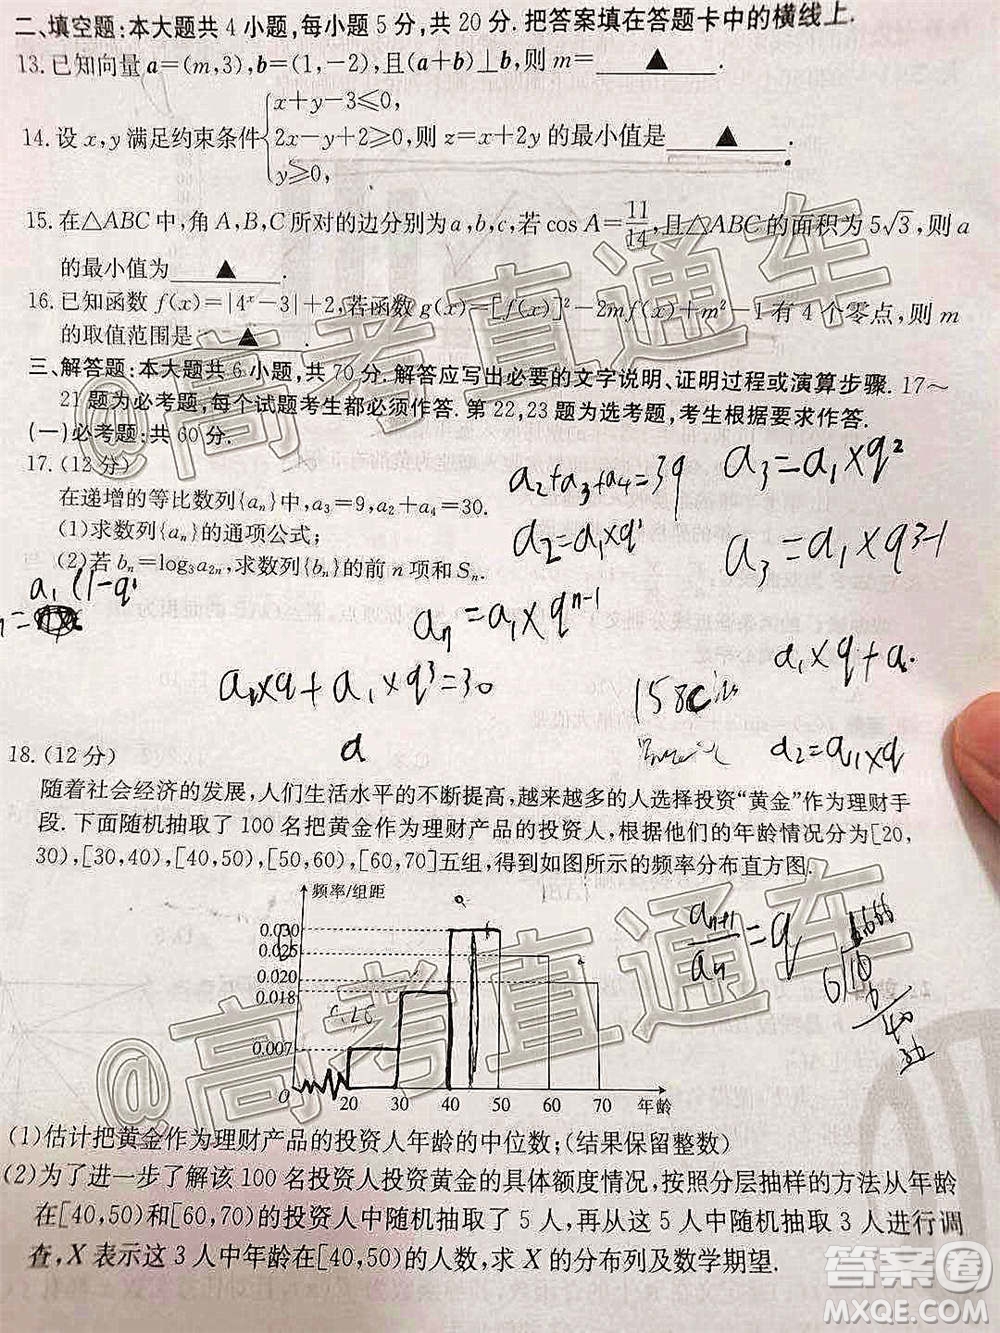 二、填空题:本大题共4小题,每小题5分,共20分.把答案填在答题卡中的横线上.
13.已知向量a=(m,3),b=(1,-2),且(a+b)⊥b,则m= ▲ .
x+y-3≤0,
14.设x,y满足约束条件{2x-y+2≥0,则z=x+2y的最小值是 ▲ .
y≥0,
15.在△ABC中,角A,B,C所对的边分别为a,b,c,若cos A=11/14,且△ABC的面积为5√3,则a
的最小值为 ▲ .
16.已知函数f(x)=|4ˣ-3|+2,若函数g(x)=[f(x)]²-2mf(x)+m²-1有4个零点,则m
的取值范围是 ▲ .
三、解答题:本大题共6小题,共70分.解答应写出必要的文字说明、证明过程或演算步骤.17~
21题为必考题,每个试题考生都必须作答.第22,23题为选考题,考生根据要求作答.
(一)必考题:共60分.
17.(12分)
在递增的等比数列{aₙ}中,a₃=9,a₂+a₄=30.
(1)求数列{aₙ}的通项公式;
(2)若bₙ=log₃a₂ₙ,求数列{bₙ}的前n项和Sₙ.
a₂+a₃+a₄=39
a₃=a₁×q²
a₂=a₁×q¹
a₃=a₁×q³⁻¹
a₁(1-q
aₙ=a₁×qⁿ⁻¹
a₁×q+a₁×q³=30
a₁×q+a
158
a
a₂=a₁×q
18.(12分)
随着社会经济的发展,人们生活水平的不断提高,越来越多的人选择投资“黄金”作为理财手
段.下面随机抽取了100名把黄金作为理财产品的投资人,根据他们的年龄情况分为[20,
30),[30,40),[40,50),[50,60),[60,70]五组,得到如图所示的频率分布直方图.
频率/组距
0.030
0.025
0.020
0.018
0.007
O 20 30 40 50 60 70 年龄
aₙ₊₁/aₙ=q
(1)估计把黄金作为理财产品的投资人年龄的中位数;(结果保留整数)
(2)为了进一步了解该100名投资人投资黄金的具体额度情况,按照分层抽样的方法从年龄
在[40,50)和[60,70)的投资人中随机抽取了5人,再从这5人中随机抽取3人进行调
查,X表示这3人中年龄在[40,50)的人数,求X的分布列及数学期望.
@高考直通车
@高考直通车
答案圈
MXQE.COM